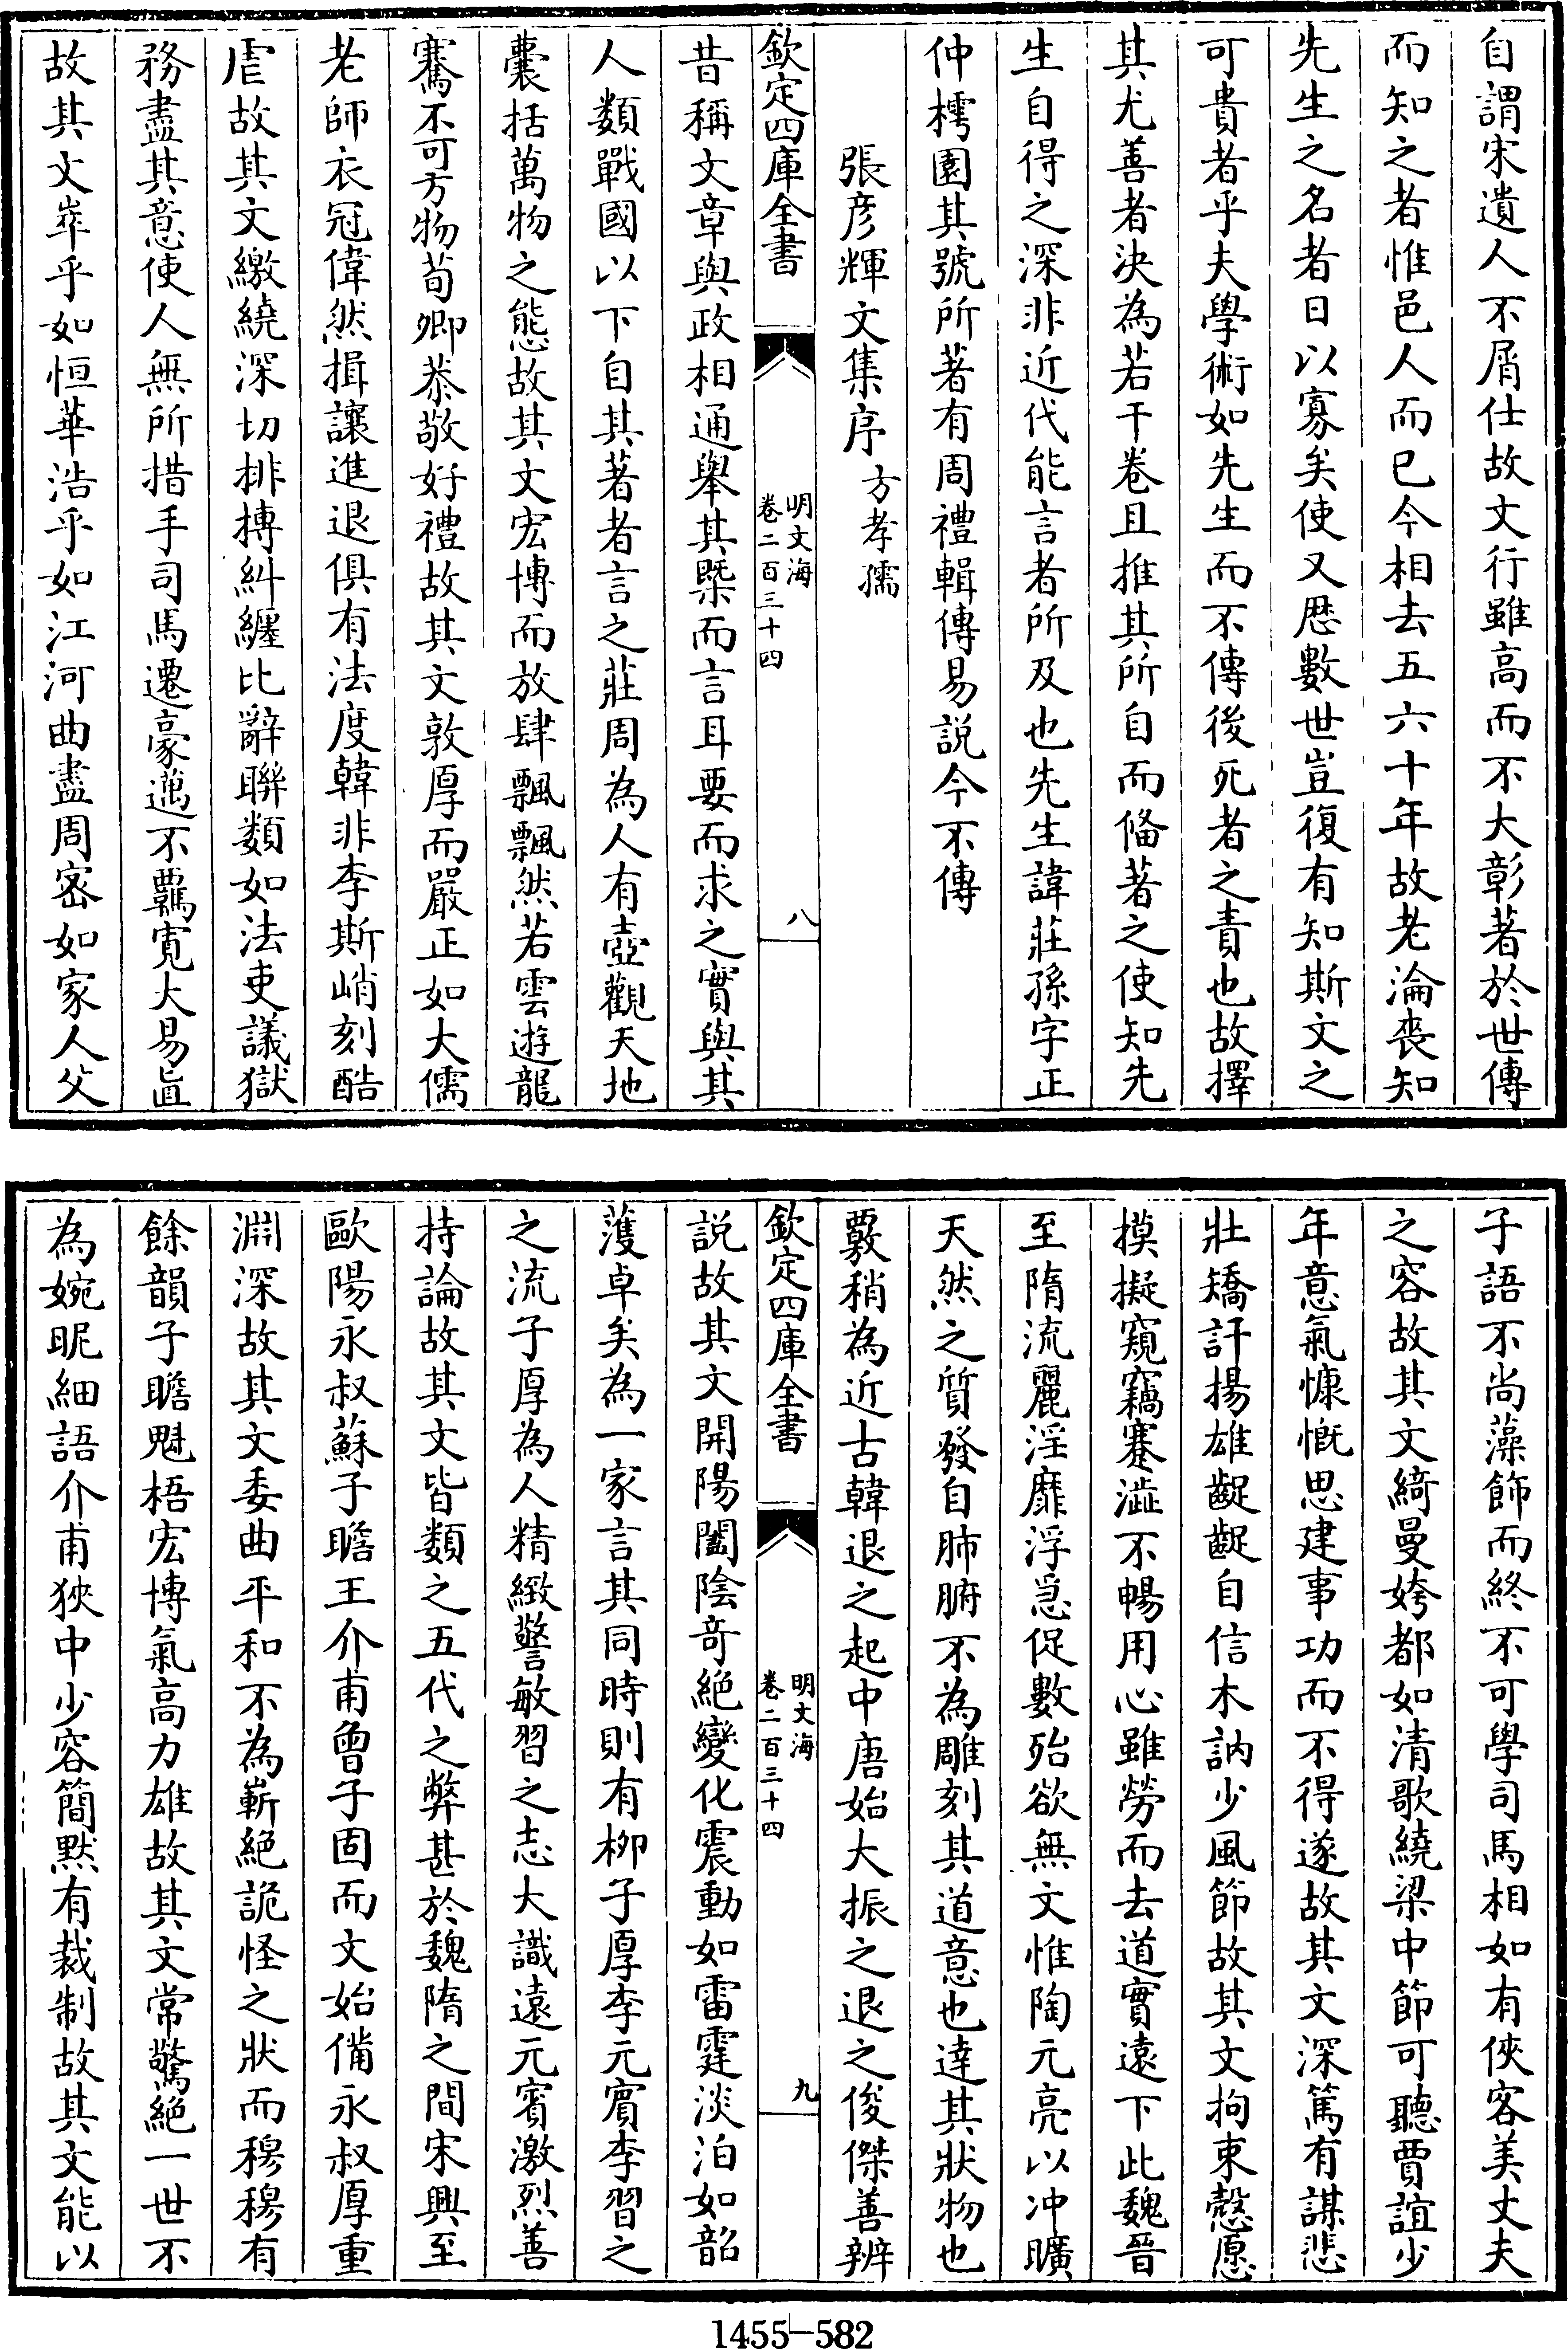 自謂宋遺人不屑仕故文行雖高而不大彰著於世傳
而知之者惟邑人而已今相去五六十年故老淪喪知
先生之名者日以寡矣使又厯數世豈復有知斯文之
可貴者乎夫學術如先生而不傳後死者之責也故擇
其尤善者決為若干卷且推其所自而俻著之使知先
生自得之深非近代能言者所及也先生諱莊孫字正
仲樗園其號所著有周禮輯傳易説今不傳
張彦輝文集序 方孝孺
欽定四庫全書 明文海 卷二百三十四 八
昔稱文章與政相通舉其槩而言耳要而求之實與其
人類戰國以下自其著者言之莊周為人有壺觀天地
囊括萬物之態故其文宏博而放肆飄飄然若雲遊龍
騫不可方物荀卿恭敬好禮故其文敦厚而嚴正如大儒
老師衣冠偉然揖讓進退俱有法度韓非李斯峭刻酷
虐故其文繳繞深切排搏糾纏比辭聯類如法吏議獄
務盡其意使人無所措手司馬遷豪邁不羈寛大易直
故其文崒乎如恒華浩乎如江河曲盡周密如家人父
子語不尚藻飾而終不可學司馬相如有俠客美丈夫
之容故其文綺曼姱都如清歌繞梁中節可聽賈誼少
年意氣慷慨思建事功而不得遂故其文深篤有謀悲
壯矯訐揚雄齪齪自信木訥少風節故其文拘束慤愿
摸擬窺竊蹇澁不暢用心雖勞而去道實遠下此魏晉
至隋流麗淫靡浮急促數殆欲無文惟陶元亮以冲曠
天然之質發自肺腑不為雕刻其道意也達其狀物也
覈稍為近古韓退之起中唐始大振之退之俊傑善辨
欽定四庫全書 明文海 卷二百三十四 九
説故其文開陽闔陰奇絶變化震動如雷霆淡泊如韶
濩卓矣為一家言其同時則有柳子厚李元賓李習之
之流子厚為人精緻警敏習之志大識遠元賓激烈善
持論故其文皆類之五代之弊甚於魏隋之間宋興至
歐陽永叔蘇子瞻王介甫曾子固而文始備永叔厚重
淵深故其文委曲平和不為嶄絶詭怪之狀而穆穆有
餘韻子瞻魁梧宏博氣高力雄故其文常驚絶一世不
為婉昵細語介甫狹中少容簡默有裁制故其文能以
1455-582